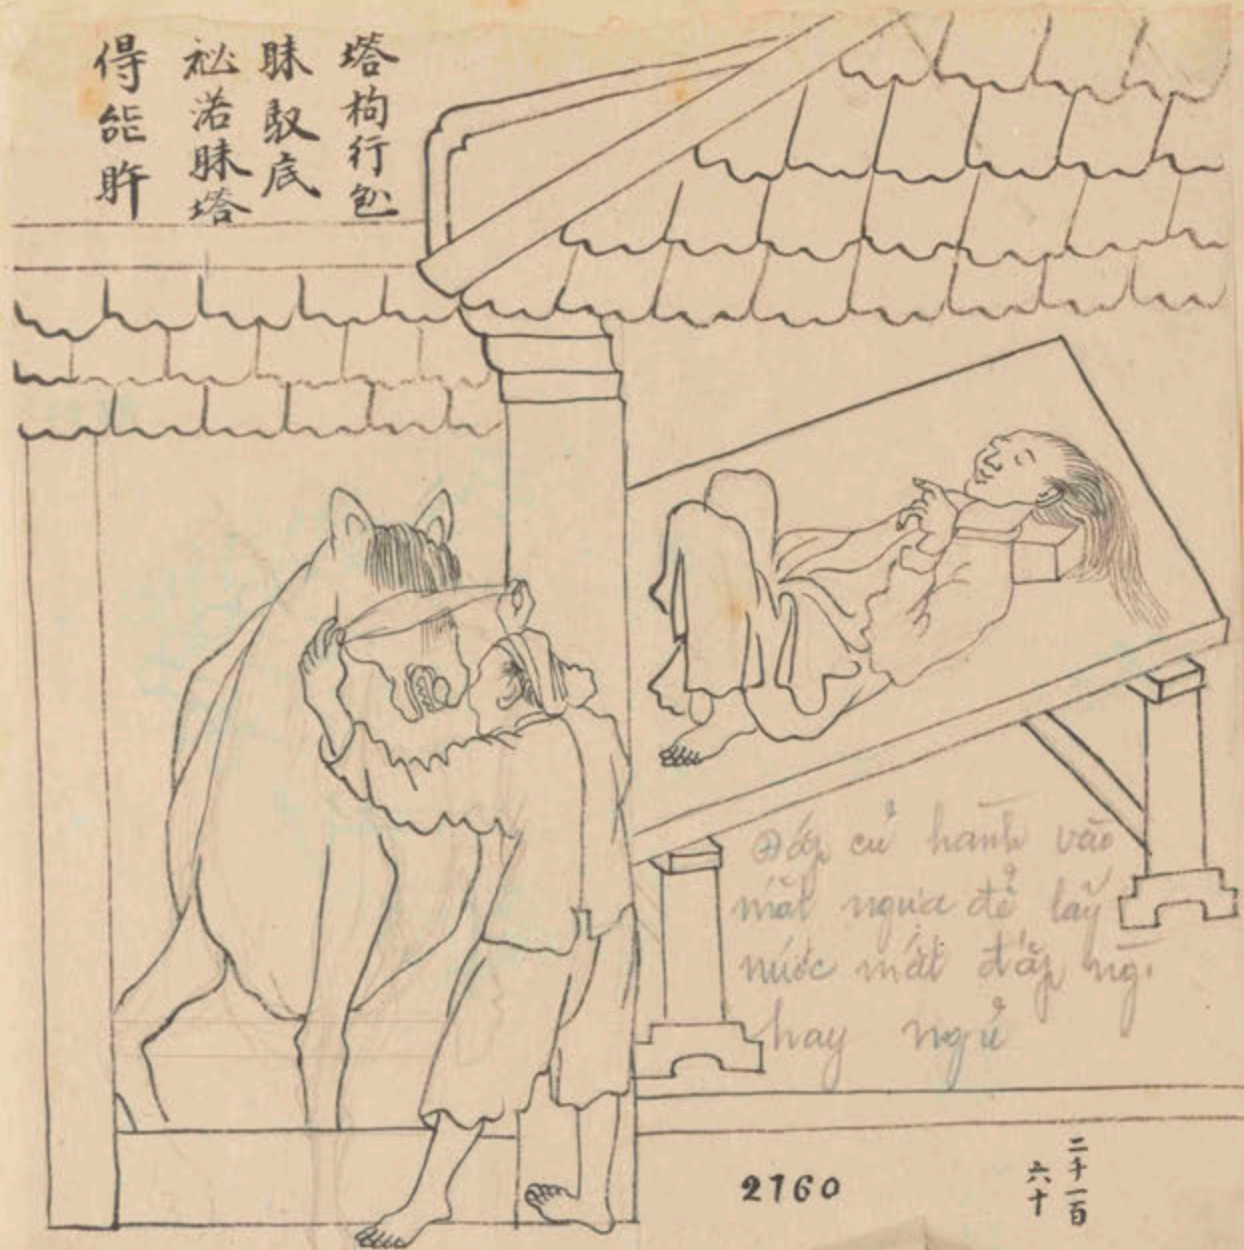 塔枸行
眜馭底
渃眜塔
𠊚能𥄬
Đắp củ hành vào
mắt ngựa để lấy
nước mắt đắp ng̀.
hay ngủ
2160
二千一百
六十